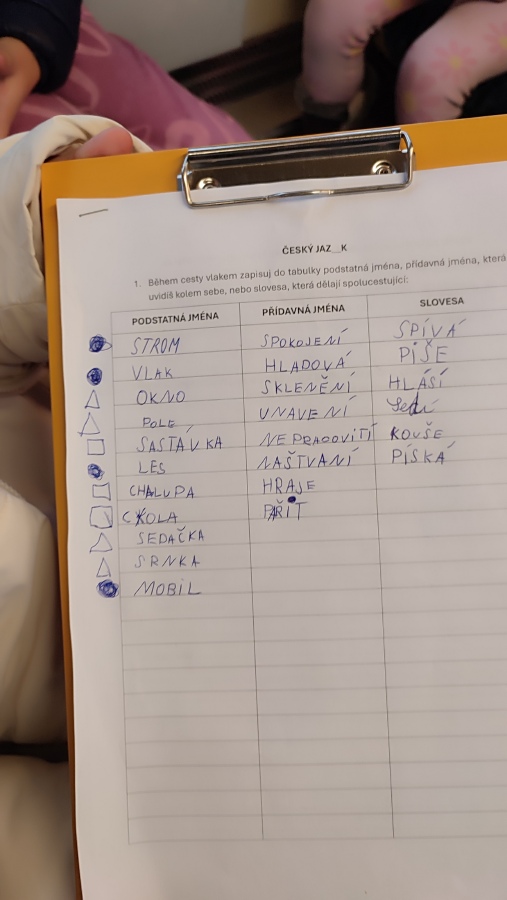 ČESKÝ JAZ__K
1. Během cesty vlakem zapisuj do tabulky podstatná jména, přídavná jména, která
uvidíš kolem sebe, nebo slovesa, která dělají spolucestující:
PODSTATNÁ JMÉNA PŘÍDAVNÁ JMÉNA SLOVESA
STROM SPOKOJENÍ SPÍVÁ
VLAK HLADOVÁ PÍŠE
OKNO SKLENĚNÍ HLÁSÍ
POLE UNAVENÍ Sedí
SASTÁVKA NEPRACOVITÍ KOUŠE
LES NAŠTVANÍ PÍSKÁ
CHALUPA HRAJE
ŠKOLA PAŘIT
SEDAČKA
SRNKA
MOBIL